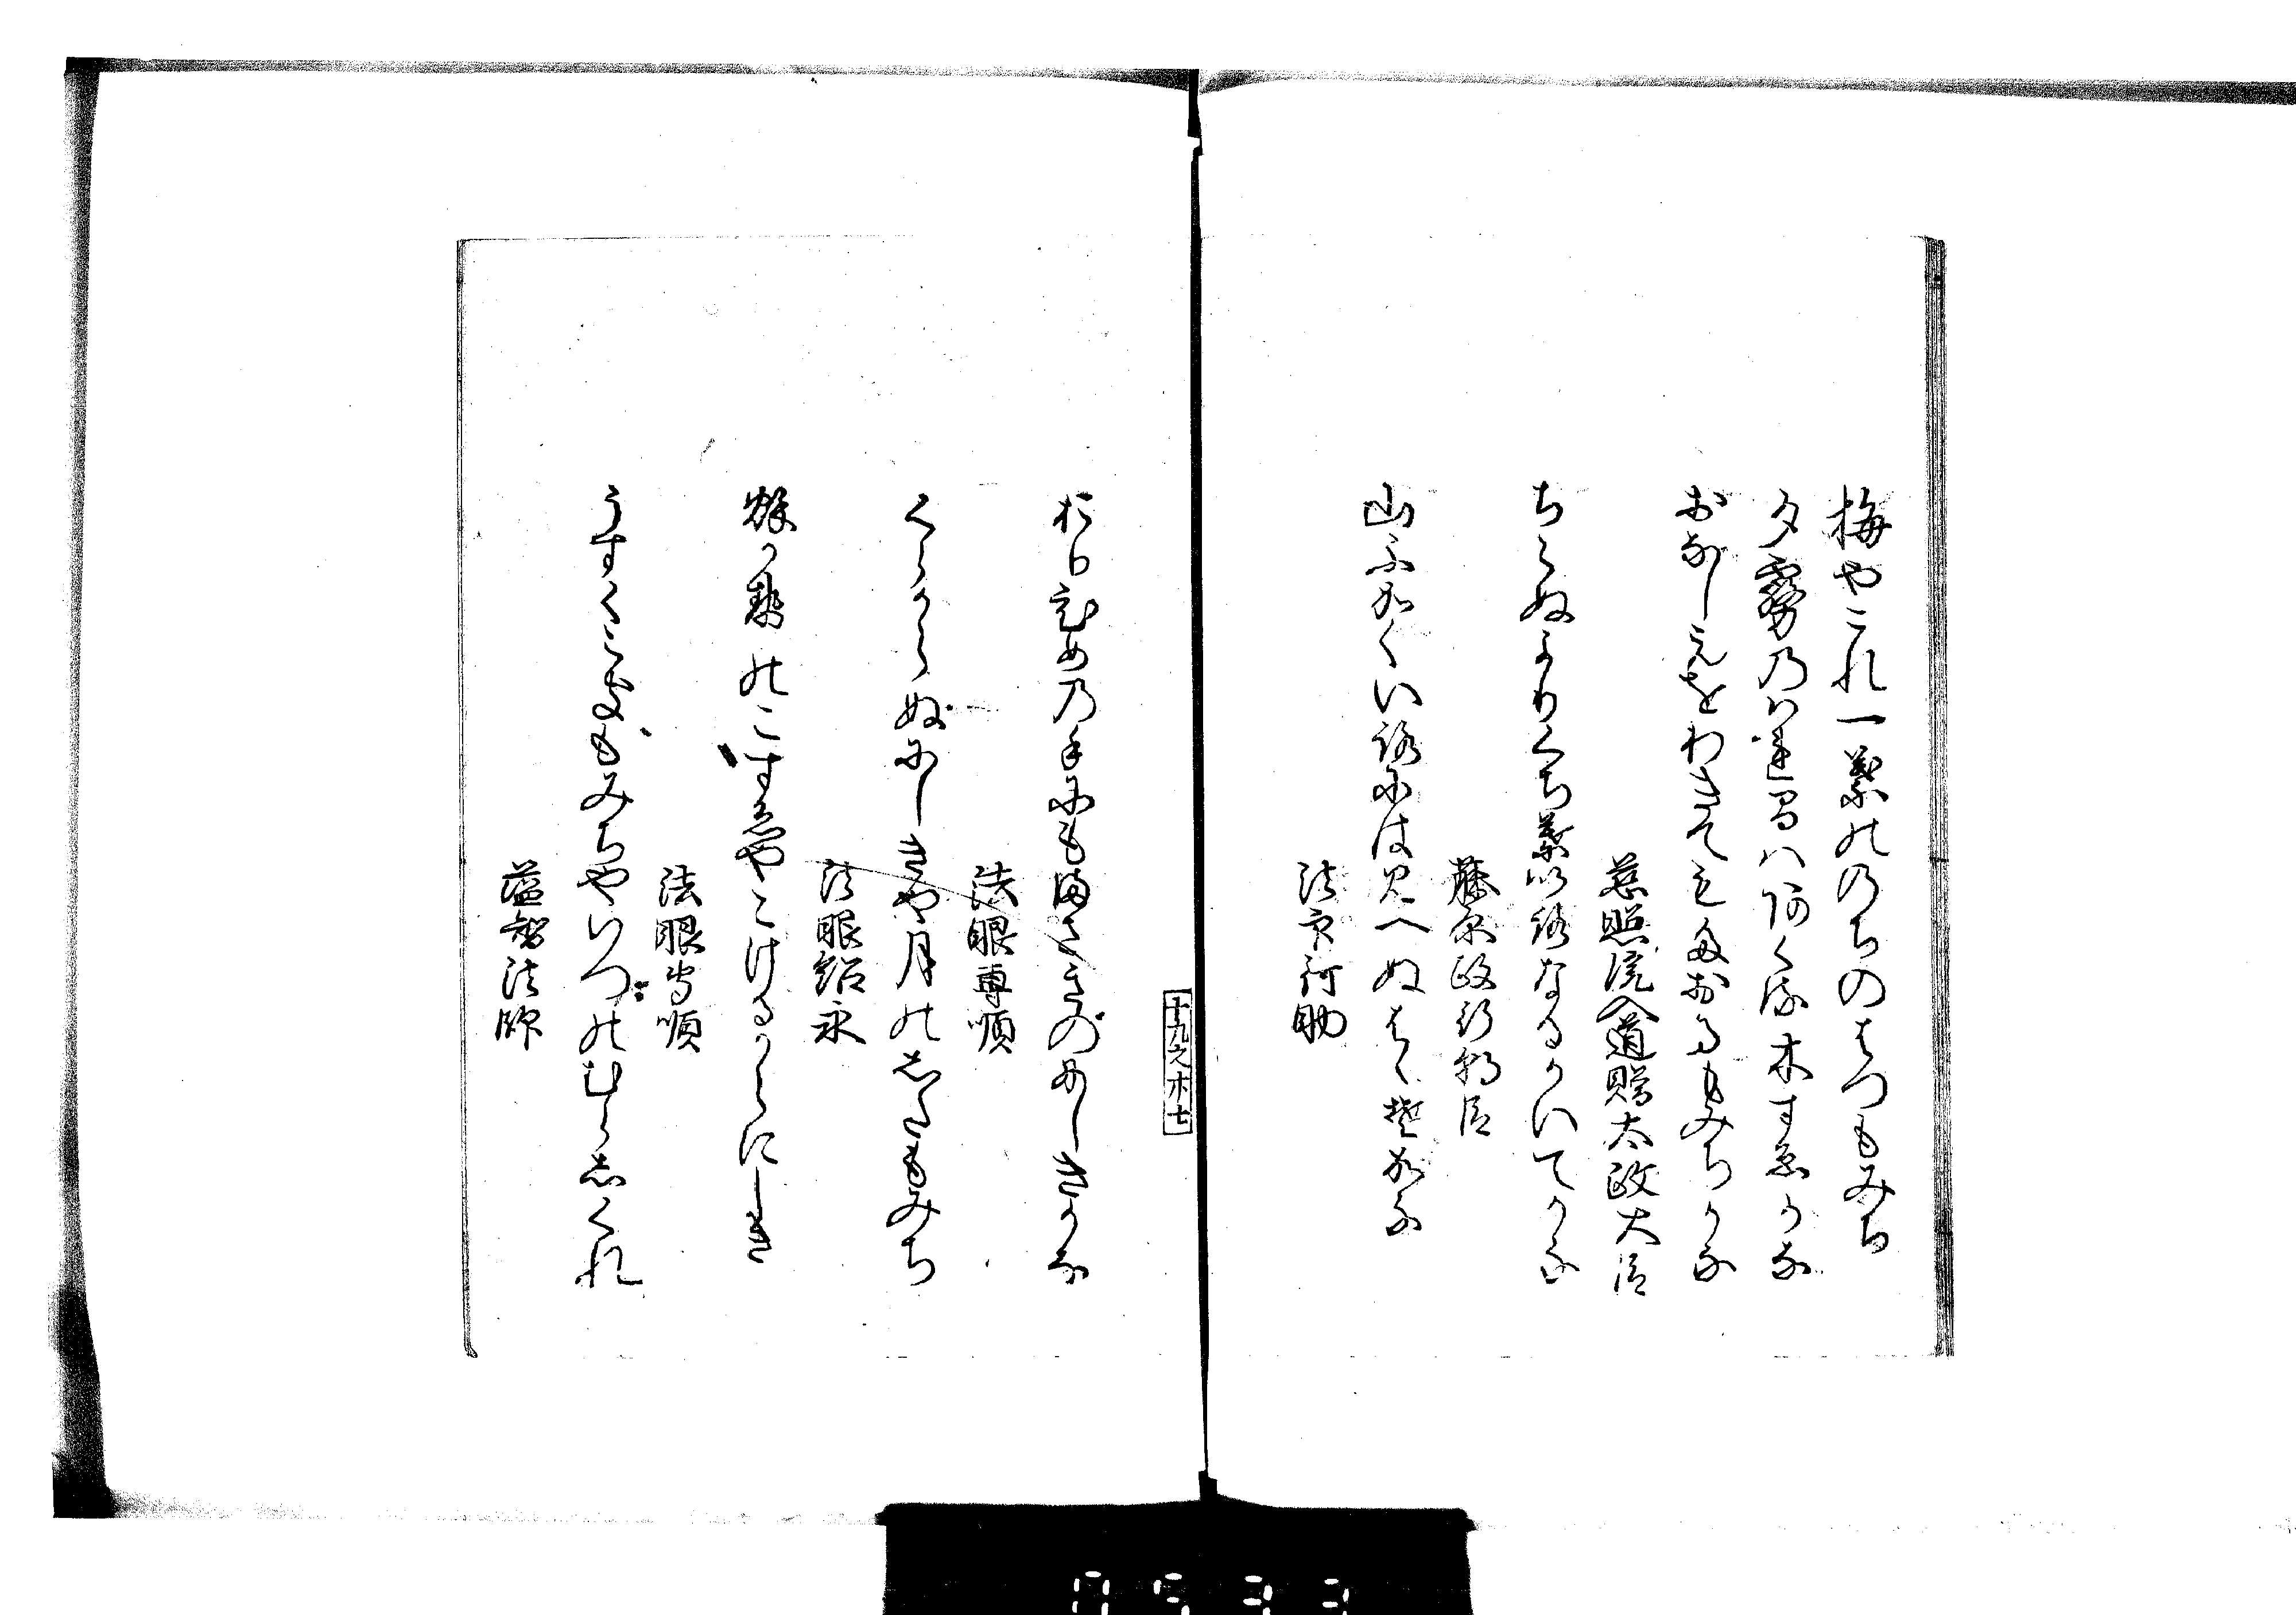 梅やこれ一葉のゝちのはつもみち
夕霧のはれまはちかく木すゑかな
おなしえをわきてそめおるもみちかな
慈照院入道贈太政大臣
ちらぬよりくち葉いろなるかいてかな
藤原政行朝臣
山ふかくいろには見へぬはゝ楚かな
法京行助
おりひめの手にもまさきのにしきかな
法眼専順
くらからぬにしきや月のしたもみち
法眼紹永
蛛かゐのこすゑやこけるからにしき
法眼専順
うすくこきもみちやいつのむらしくれ
蘊智法師
十九之木七